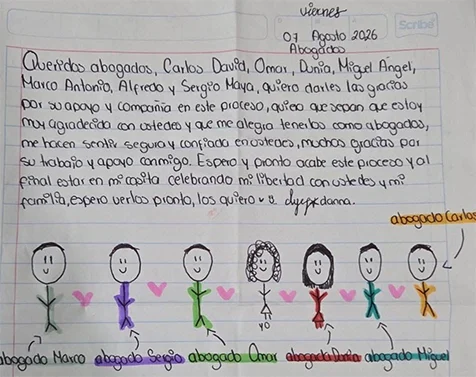 viernes
Scribe
07 Agosto 2026
Abogados
Queridos abogados, Carlos David, Omar, Dunia, Miguel Ángel,
Marco Antonio, Alfredo y Sergio Maya, quiero darles las gracias
por su apoyo y compañia en este proceso, quiero que sepan que estoy
muy agradecida con ustedes y que me alegra tenerlos como abogados,
me hacen sentir segura y confiada en ustedes, muchas gracias por
su trabajo y apoyo conmigo. Espero y pronto acabe este proceso y al
final estar en mi casita celebrando mi libertad con ustedes y mi
familia, espero verlos pronto, los quiero
abogado Carlos
YO
abogado Marco abogado Sergio abogado Omar abogada Dunia abogado Miguel